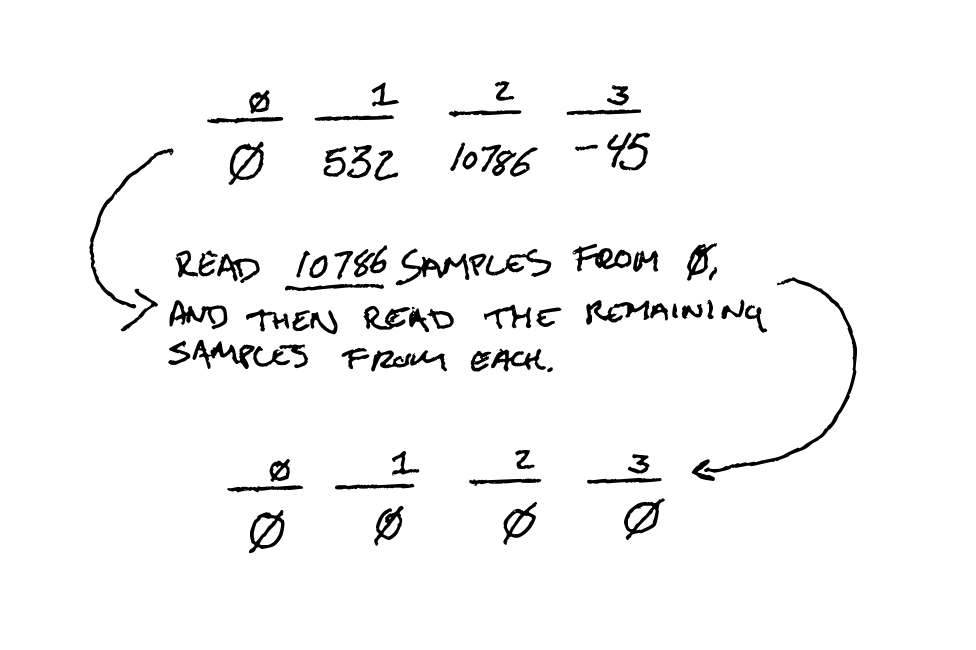 Ø 1 2 3
Ø 532 10786 -45
READ 10786 SAMPLES FROM Ø,
AND THEN READ THE REMAINING
SAMPLES FROM EACH.
Ø 1 2 3
Ø Ø Ø Ø